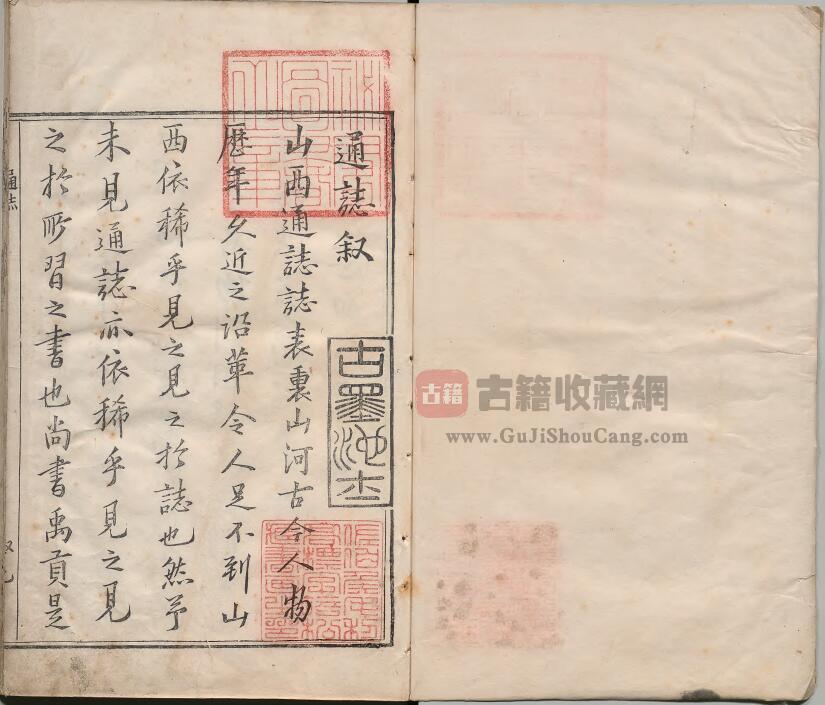 通誌叙
山西通誌誌表裏山河古今人物
歷年久近之沿革令人足不到山
西依稀乎見之見之於誌也然予
未見通誌亦依稀乎見之見
之於所習之書也尚書禹貢是
通誌
古籍
古籍收藏網
www.GuJiShouCang.com